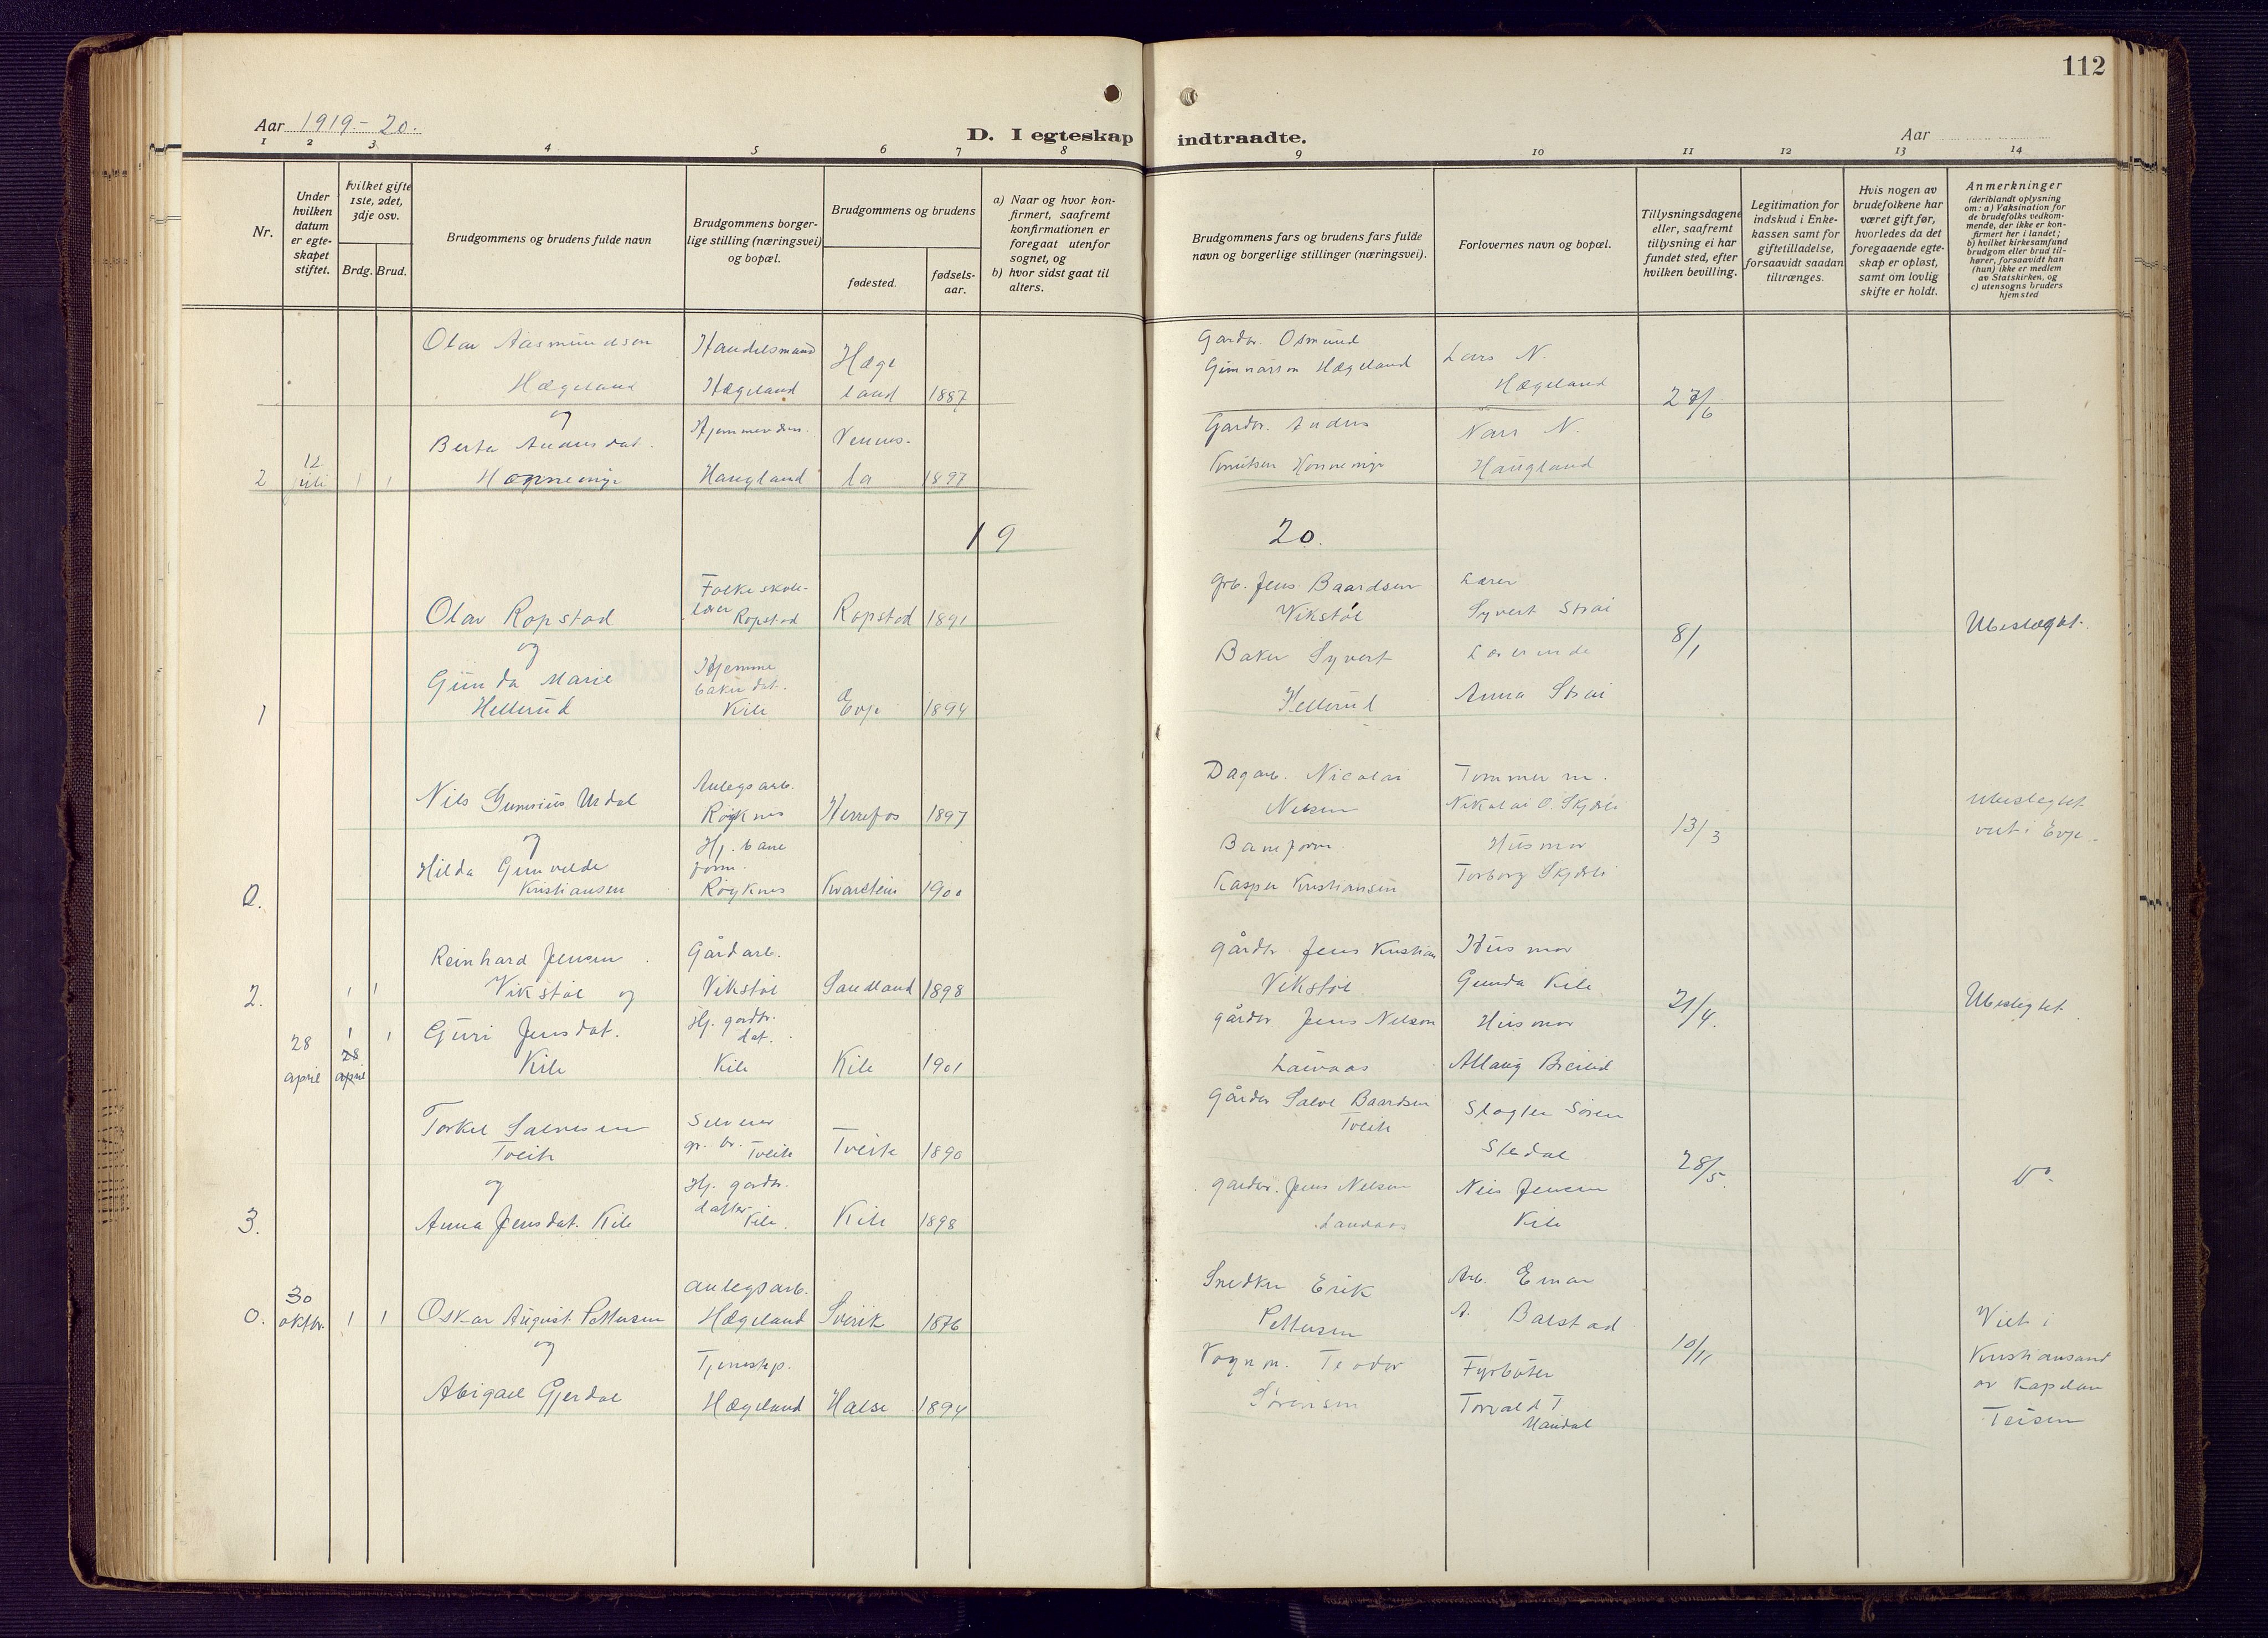 112
Aar 1919-20.
D. I egteskap indtraadte.
Aar
1 2 3 4 5 6 7 8 9 10 11 12 13 14
Nr.
Under hvilken datum er egte-skapet stiftet.
Hvilket gifte 1ste, 2det, 3dje osv.
Brdg. Brud.
Brudgommens og brudens fulde navn
Brudgommens borger-lige stilling (næringsvei) og bopæl.
Brudgommens og brudens
fødested.
fødsels-aar.
a) Naar og hvor kon-firmert, saafremt konfirmationen er foregaat utenfor sognet, og
b) hvor sidst gaat til alters.
Brudgommens fars og brudens fars fulde navn og borgerlige stillinger (næringsvei).
Forlovernes navn og bopæl.
Tillysningsdagene eller, saafremt tillysning ei har fundet sted, efter hvilken bevilling.
Legitimation for indskud i Enke-kassen samt for giftetilladelse, forsaavidt saadan tiltrænges.
Hvis nogen av brudefolkene har været gift før, hvorledes da det foregaaende egte-skap er opløst, samt om lovlig skifte er holdt.
Anmerkninger (deriblandt oplysning om: a) Vaksination for de brudefolks vedkom-mende, der ikke er kon-firmert her i landet; b) hvilket kirkesamfund brudgom eller brud til-hører, forsaavidt han (hun) ikke er medlem av Statskirken, og c) utensogns bruders hjemsted
Olav Aasmundsen Hægeland
Handelsmand Hægeland
Hægeland
1887
Gardbr. Osmund Gunnarson Hægeland
Lars N. Hægeland
27/6
og
2 12 juli 1 1
Berta Andersdat.
Haugland
Vennesla
1897
Gardbr. Anders Knutsen
N. Haugland
19 20.
Olav Ropstad
Folkeskolelærer Ropstad
Ropstad
1891
Grb. Jens Baardsen Vikstøl
Lærer Syvert Strai
8/1
Ubeslegtet.
og
1
Gunda Marie Hellerud
Hjemme bakerdat. Kile
Evje
1894
Baker Syvert Hellerud
Lærerinde Anna Strai
Nils Urdal
Anlegsarb. Røyknes
Herrefos
1897
Dagarb. Nicolai Nelsen
Tømmerm. Nikolai O. Skjærli
13/3
Ubeslegtet
viet i Evje.
og
0.
Hilda Gunvalda Kristiansen
Hj. baneform. Røyknes
Kvarstein
1900
Baneform. Kasper Kristiansen
Husmor Torborg Skjærli
2. 1 1
Reinhard Jensen Vikstøl og
Gårdarb. Vikstøl
Sandland
1898
gårdbr. Jens Kristian Vikstøl
Husmor Gunda Kile
21/4.
Ubeslegtet
28 april 1 28 april 1
Guri Jensdat. Kile
Hj. gardbr. dat. Kile
Kile
1901
gårdbr Jens Nelson Lauvaas
Husmor
Torkel Salvesen Tveite
Selveier gr. br. Tveite
Tveite
1890
Gårdbr Salve Baardsen Tveite
Slagter Søren Stedal
28/5.
Do.
og
3.
Anna Jensdat. Kile
Hj. gardbr. datter Kile.
Kile
1898
gardbr. Jens Nelsen Lauvaas
Nils Jensen Kile
0. 30 oktbr. 1 1
Oskar August Pettersen
anlegsarb. Hægeland
Sverik
1876
Snedker Erik Pettersen
Arb. Einar A. Balstad
10/11
Viet i Kristiansand av Kapelan Teisen
og
Abigael Gjerdal
Tjenestep. Hægeland
Halse
1894
Vognm. Teodor Sørensen
Fyrbøter Torvald T. Mandal